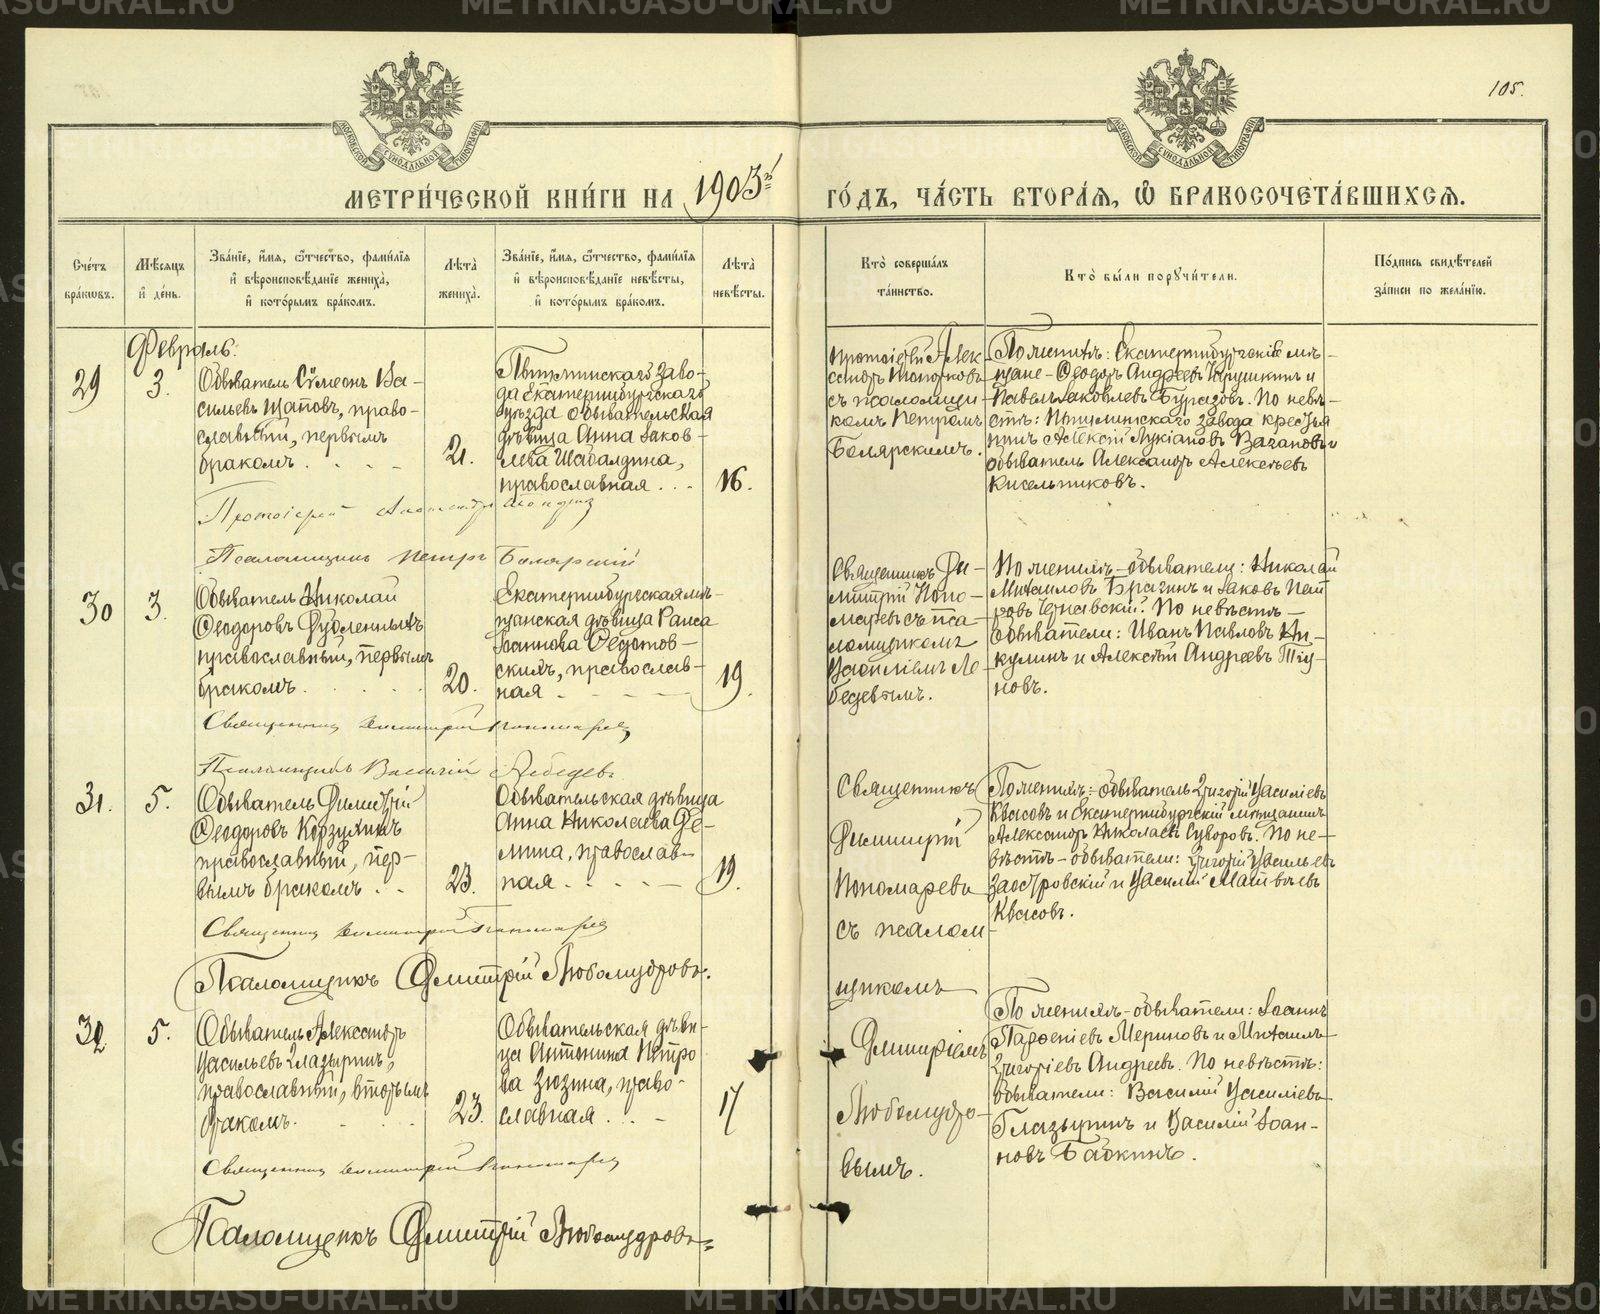 105.
МОСКОВСКОЙ СѴНОДАЛЬНОЙ ТИПОГРАФІИ
МОСКОВСКОЙ СѴНОДАЛЬНОЙ ТИПОГРАФІИ
МЕТРИ́ЧЕСКОЙ КНИ́ГИ НА 1903й
ГО́ДЪ, ЧА́СТЬ ВТОРА́Я, Ѿ БРАКОСОЧЕТА́ВШИХСЯ.
Сче́тъ бра́кѡвъ.
Мѣ́сяцъ и҆ де́нь.
Зва́нїе, и҆́мя, ѿтчество, фами́лїя и҆ вѣроисповѣ́данїе жениха̀, и҆ кото́рымъ бра́комъ.
Лѣ́та̀ жениха̀.
Зва́нїе, и҆́мя, ѿтчество, фами́лїя и҆ вѣроисповѣ́данїе невѣ́сты, и҆ кото́рымъ бра́комъ.
Лѣ́та̀ невѣ́сты.
Кто̀ соверша́лъ та́инство.
Кто̀ бы́ли порꙋчи́тели.
По́дпись свидѣ́телей за́писи по жела́нїю.
Февраль.
29
3.
Обыватель Сѵмеонъ Ва-
сильевъ Щаповъ, право-
славный, первымъ
бракомъ.
21.
Пышминскаго заво-
да Екатеринбургскаго
уѣзда обывательская
дѣвица Анна Іаков-
лева Шабалдина,
православная...
16.
Протоіерей Алек-
сандръ Топорковъ
съ псаломщи-
комъ Петромъ
Болярскимъ.
По женихѣ: Екатеринбургскіе мѣ-
щане - Ѳеодоръ Андреевъ
Павелъ Іаковлевъ Буразовъ. По невѣ-
стѣ: Пышминскаго завода крестья
нинъ Алексій Лукіановъ Вачановъ и
обыватель Александръ Алексѣевъ
Кисельниковъ.
Протоіерей Александръ
Псаломщикъ Петръ Болярскій
30
3.
Обыватель Николай
Ѳеодоровъ
православный, первымъ
бракомъ.
20.
Екатеринбургская мѣ-
щанская дѣвица Раиса
Іоаннова Ѳедотов-
скихъ, православ-
ная
19.
Священникъ Ди-
митрій Поно-
маревъ съ пса-
ломщикомъ
Василіемъ Ле-
бедевымъ.
По женихѣ - обыватели: Николай
Михаиловъ Брагинъ и Іаковъ Пет
ровъ Чернавскій. По невѣстѣ -
обыватели: Иванъ Павловъ Ни-
кулинъ и Алексѣй Андреевъ Тіу-
новъ.
Священникъ Димитрій Пономаревъ
Псаломщикъ Василій Лебедевъ.
31.
5.
Обыватель Димитрій
Ѳеодоровъ Корзухинъ
православный, пер-
вымъ бракомъ..
23.
Обывательская дѣвица
Анна Николаева Де-
мина, православ-
ная
19.
Священникъ
Димитрій
Пономаревъ
съ псалом-
щикомъ
Димитріемъ
Любомудро-
вымъ.
По женихѣ: - обыватель Григорій Василіевъ
Квасовъ и Екатеринбургскій мѣщанинъ
Александръ Николаевъ Суворовъ. По не-
вѣстѣ - обыватели: Григорій Васильевъ
Заостровскій и Василій Матвѣевъ
Квасовъ.
Священникъ Димитрій Пономаревъ
Псаломщикъ Дмитрій Любомудровъ.
32
5.
Обыватель Александръ
Васильевъ Глазыринъ,
православный, вторымъ
бракомъ.
23.
Обывательская дѣви-
ца Антонина Петро
ва Зюзина, право-
славная...
17
По женихѣ - обыватели: Іоаннъ
Парѳеніевъ Мериновъ и Михаилъ
Григоріевъ Андреевъ. По невѣстѣ:
обыватели: Василій Василіевъ
Глазыринъ и Василій Іоан-
новъ Бабкинъ.
Священникъ Димитрій Пономаревъ
Псаломщикъ Дмитрій Любомудровъ
METRIKI.GASU-URAL.RU